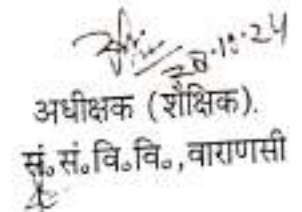 28.10.24
अधीक्षक (शैक्षिक).
सं॰सं॰वि॰वि॰,वाराणसी